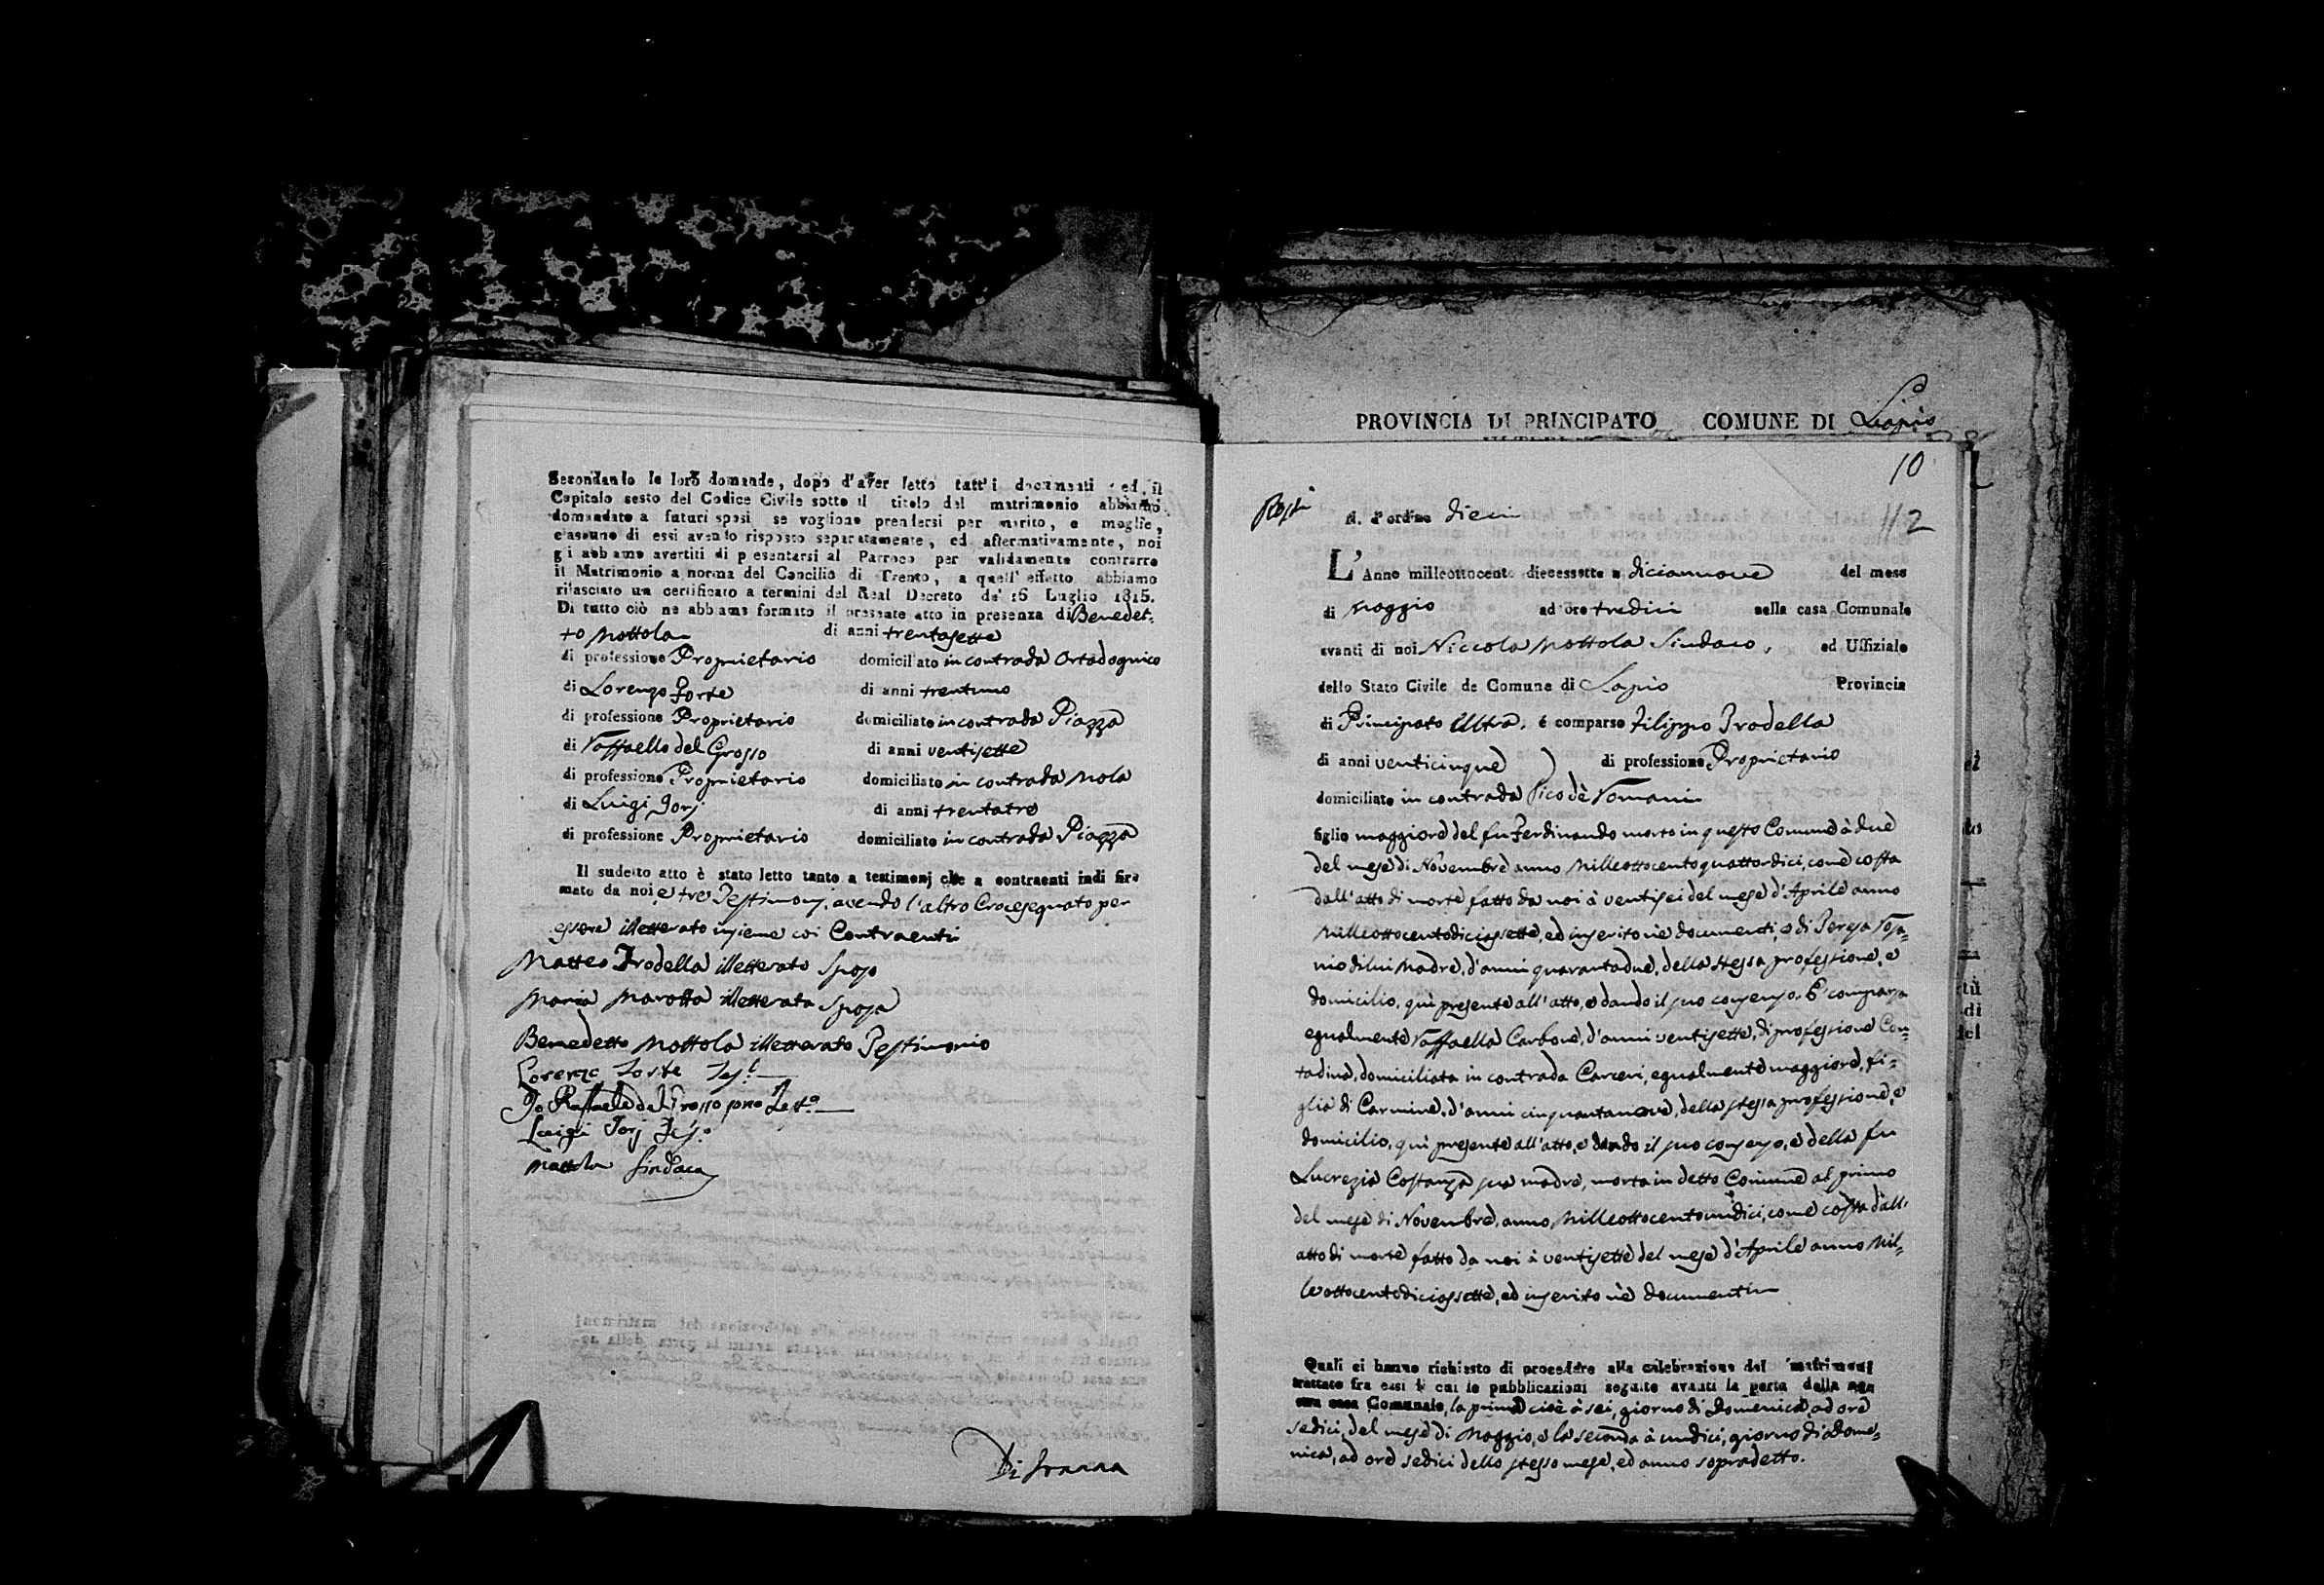 Secondando le loro domande, dopo d'aver letto tutt'i documenti ed il
Capitolo sesto del Codice Civile sotto il titolo del matrimonio abbiamo
domandato a futuri sposi se vogliono prendersi per marito, e moglie,
ciascuno di essi avendo risposto separatamente, ed affermativamente, noi
gi abbiamo avertiti di presentarsi al Parroco per validamente contrarre
il Matrimonio a norma del Concilio di Trento, a quell' effetto abbiamo
rilasciato un certificato a termini del Real Decreto de' 16 Luglio 1815.
Di tutto ciò ne abbiamo formato il presente atto in presenza di Benedet-
to Mottola di anni trentasette
di professione Proprietario domiciliato in contrada Ortodognico
di Lorenzo Forte di anni trentuno
di professione Proprietario domiciliato in contrada Piazza
di Raffaello del Grosso di anni ventisette
di professione Proprietario domiciliato in contrada Mola
di Luigi Iorj di anni trentatre
di professione Proprietario domiciliato in contrada Piazza
Il sudetto atto è stato letto tanto a testimonj che a contraenti indi fir-
mato da noi, e tre Testimonj, avendo l'altro Crocesegnato per
essere illetterato insieme coi Contraenti
Matteo Irodella illetterato Sposo
Maria Marotta illetterata Sposa
Benedetto Mottola illetterato Testimonio
Lorenzo Forte Tes.
Io Raffaele del Grosso sono Test.o
Luigi Iorj Tes.o
Mottola Sindaco
PROVINCIA DI PRINCIPATO COMUNE DI Lapio
10
112
N. d'ordine Dieci
L'Anno milleottocento diecessette a diciannove del mese
di Maggio ad ore tredici nella casa Comunale
avanti di noi Niccola Mottola Sindaco, ed Uffiziale
dello Stato Civile de Comune di Lapio Provincia
di Principato Ultra, é comparso Filippo Irodella
di anni venticinque di professione Proprietario
domiciliato in contrada Pico dè Romani
figlio maggiore del fu Ferdinando morto in questo Comune à due
del mese di Novembre anno Milleottocentoquattordici, come costa
dall'atto di morte fatto da noi à ventisei del mese d'Aprile anno
Milleottocentodiciassette, ed inserito nè documenti, e di Teresa Rosa-
nio di lui Madre, d'anni quarantadue, della stessa professione, e
domicilio, quì presente all'atto, e dando il suo consenso. E' comparsa
egualmente Raffaella Carbone, d'anni ventisette, di professione Con-
tadina, domiciliata in contrada Carceri, egualmente maggiore, fi-
glia di Carmine, d'anni cinquantanove, della stessa professione, e
domicilio, quì presente all'atto, e dando il suo consenso, e della fu
Lucrezia Costanza sua madre, morta in detto Comune al primo
del mese di Novembre, anno, Milleottocentoundici, come costa dall'
atto di morte fatto da noi à ventisette del mese d'Aprile anno Mil-
leottocentodiciassette, ed inserito nè documenti
Quali ci hanno richiesto di procedere alla celebrazione del matrimonj
trattato fra essi le cui le pubblicazioni seguite avanti la porta della nos-
stra casa Comunale, la prima cioè à sei, giorno di Domenica, ad ore
sedici, del mese di Maggio, e la seconda à undici, giorno di Dome-
nica, ad ore sedici dello stesso mese, ed anno sopradetto.